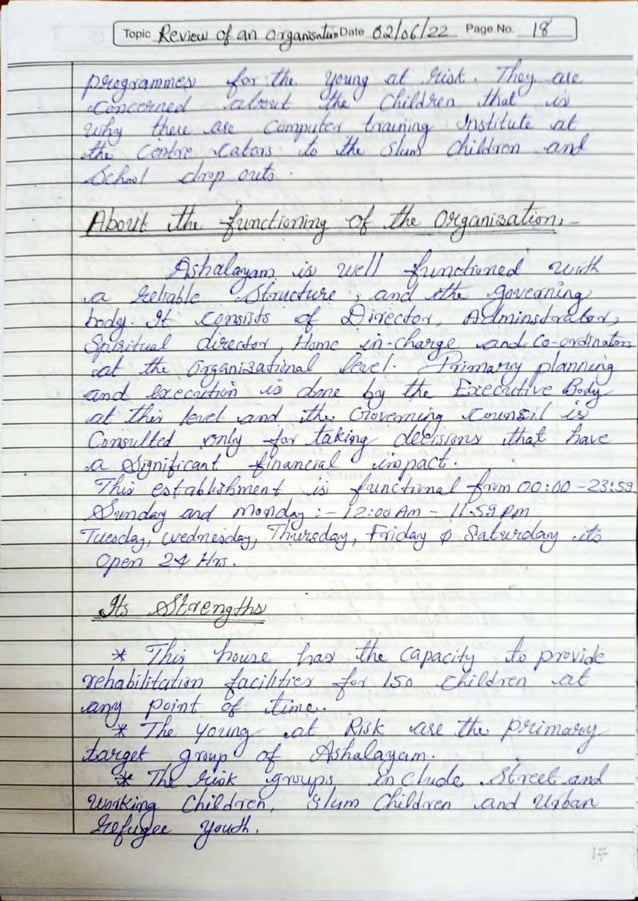 Topic Review of an Organisation Date 02/06/22 Page No. 18
programmes for the young at risk. They are
concerned about the children that is
why there are computer training Institute at
the Centre caters to the slums children and
School drop outs.
About the functioning of the Organisation:-
Ashalayam is well functioned with
a reliable structure, and the governing
body. It consists of Director, Adminstrator,
Spiritual director, Home in-charge and Co-ordinators
at the Organisational level. Primary planning
and execution is done by the Executive Body
at this level and the Governing Counsil is
Consulted only for taking decisions that have
a significant financial impact.
This establishment is functional from 00:00 - 23:59
Sunday and Monday :- 12:00 Am - 11:59 pm
Tuesday, wednesday, Thursday, Friday & Saturday its
Open 24 Hrs.
Its Strengths
* This house has the capacity to provide
rehabilitation facilities for 150 children at
any point of time.
* The young at Risk are the primary
target group of Ashalayam.
* The risk groups include Street and
working Children, slum Children and Urban
Refugee youth.
17